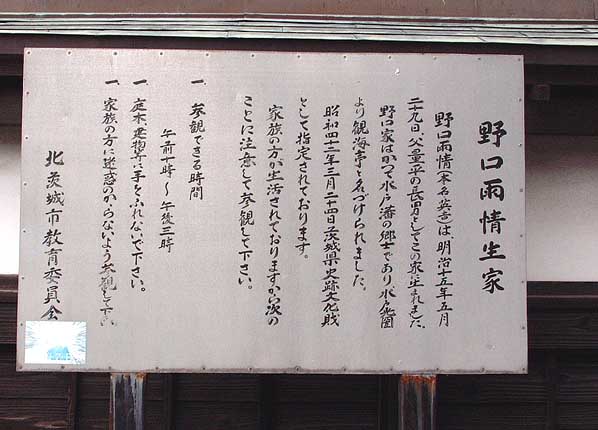 野口雨情生家
野口雨情(本名英吉)は明治十五年五月
二十九日、父量平の長男としてこの家に生まれました。
野口家はかつて水戸藩の郷士であり水戸光圀
より観海亭と名づけられました。
昭和四十二年三月二十四日茨城県史跡文化財
として指定されております。
家族の方が生活されておりますから次の
ことに注意して参観して下さい。
一 参観できる時間
午前十時〜午後三時
一 庭木、建物等に手をふれないで下さい。
一 家族の方に迷惑のかからないよう参観して下さい
北茨城市教育委員会